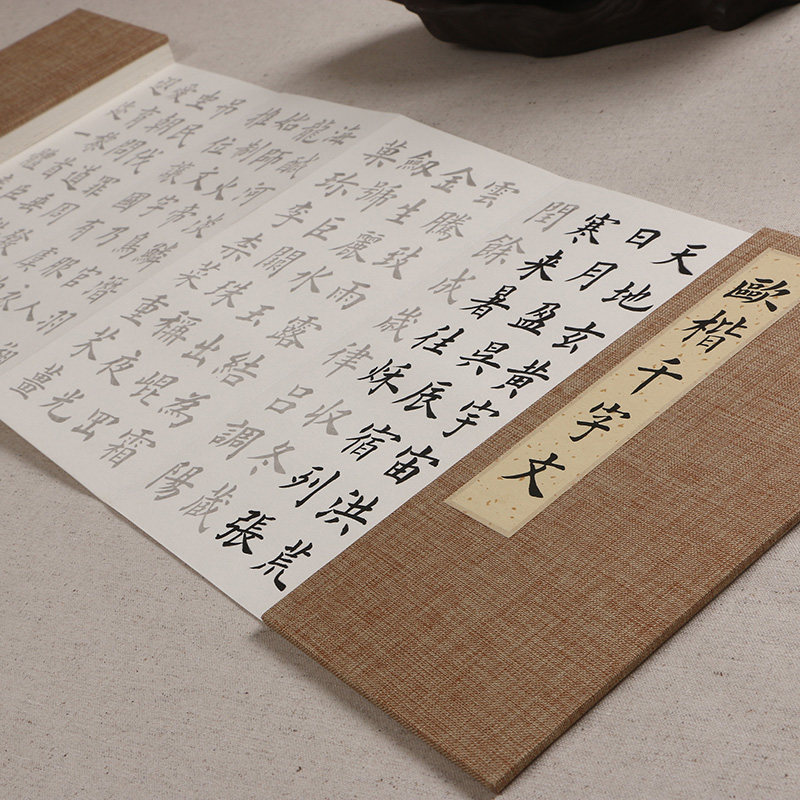 歐楷千字文
天地玄黃宇宙洪荒
日月盈昗辰宿列張
寒来暑往秌收冬藏
閏餘成歲律呂調陽
雲騰致雨露結為霜
金生麗水玉出崐罡
劔號巨闕珠稱夜光
菓珍李柰菜重芥薑
海鹹河淡鱗潛羽翔
龍師火帝鳥官人
始制文字乃服衣
推位讓國有虞
吊民伐罪周發
坐朝問道垂
愛育黎首臣
遐迩一體